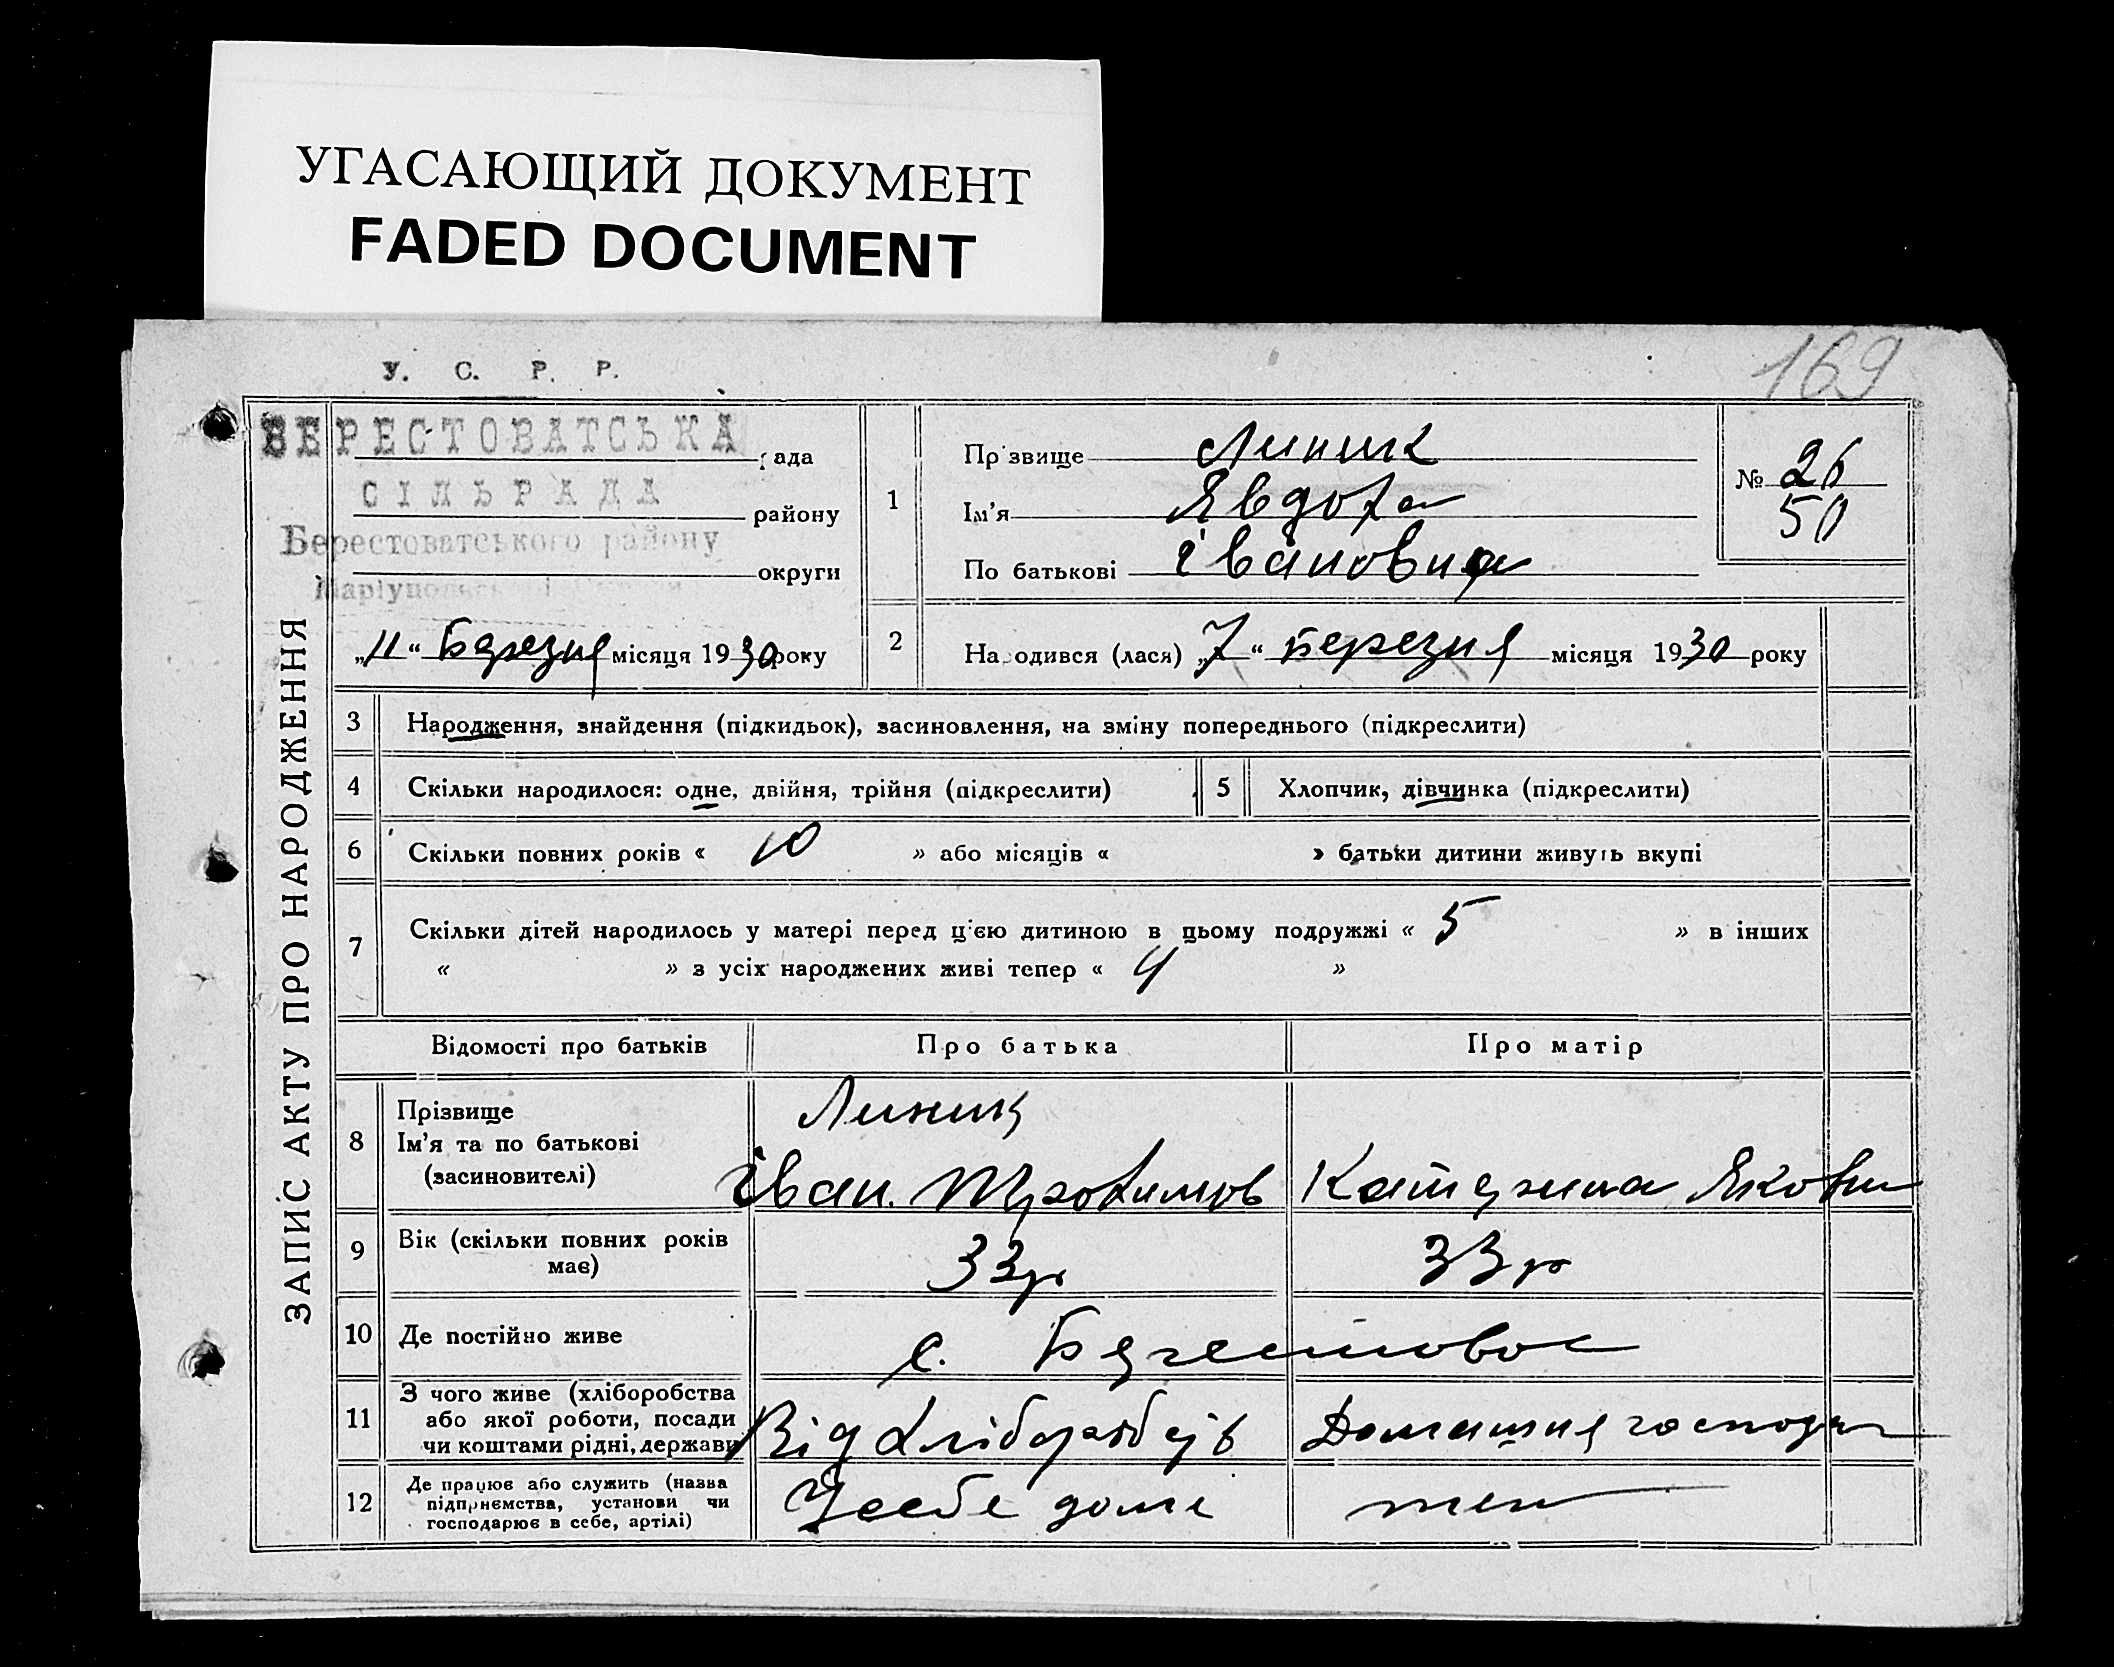 УГАСАЮЩИЙ ДОКУМЕНТ
FADED DOCUMENT
169
У. С. Р. Р.
ЗАПИС АКТУ ПРО НАРОДЖЕННЯ
БЕРЕСТОВАТСЬКА
рада
СІЛЬРАДА
району
Берестоватського району
округи
Маріупольської
„11“ Березня місяця 1930 року
1
Прізвище Линик
Ім'я Явдоха
По батькові Івановна
№ 26
50
2
Народився (лася) „7“ березня місяця 1930 року
3 Народження, знайдення (підкидьок), засиновлення, на зміну попереднього (підкреслити)
4 Скільки народилося: одне, двійня, трійня (підкреслити)
5 Хлопчик, дівчинка (підкреслити)
6 Скільки повних років « 10 » або місяців « » батьки дитини живуть вкупі
7 Скільки дітей народилось у матері перед ц'єю дитиною в цьому подружжі « 5 » в інших
« » з усіх народжених живі тепер « 4 »
Відомості про батьків Про батька Про матір
8 Прізвище
Ім'я та по батькові
(засиновителі)
Линик
Іван Трохимов
Катерина Якови
9 Вік (скільки повних років
має)
33 р
33 р
10 Де постійно живе
с. Берестовое
11 З чого живе (хліборобства
або якої роботи, посади
чи коштами рідні, держави)
Від
Домашня господар
12 Де працює або служить (назва
підприємства, установи чи
господарює в себе, артілі)
У себе дома
теж